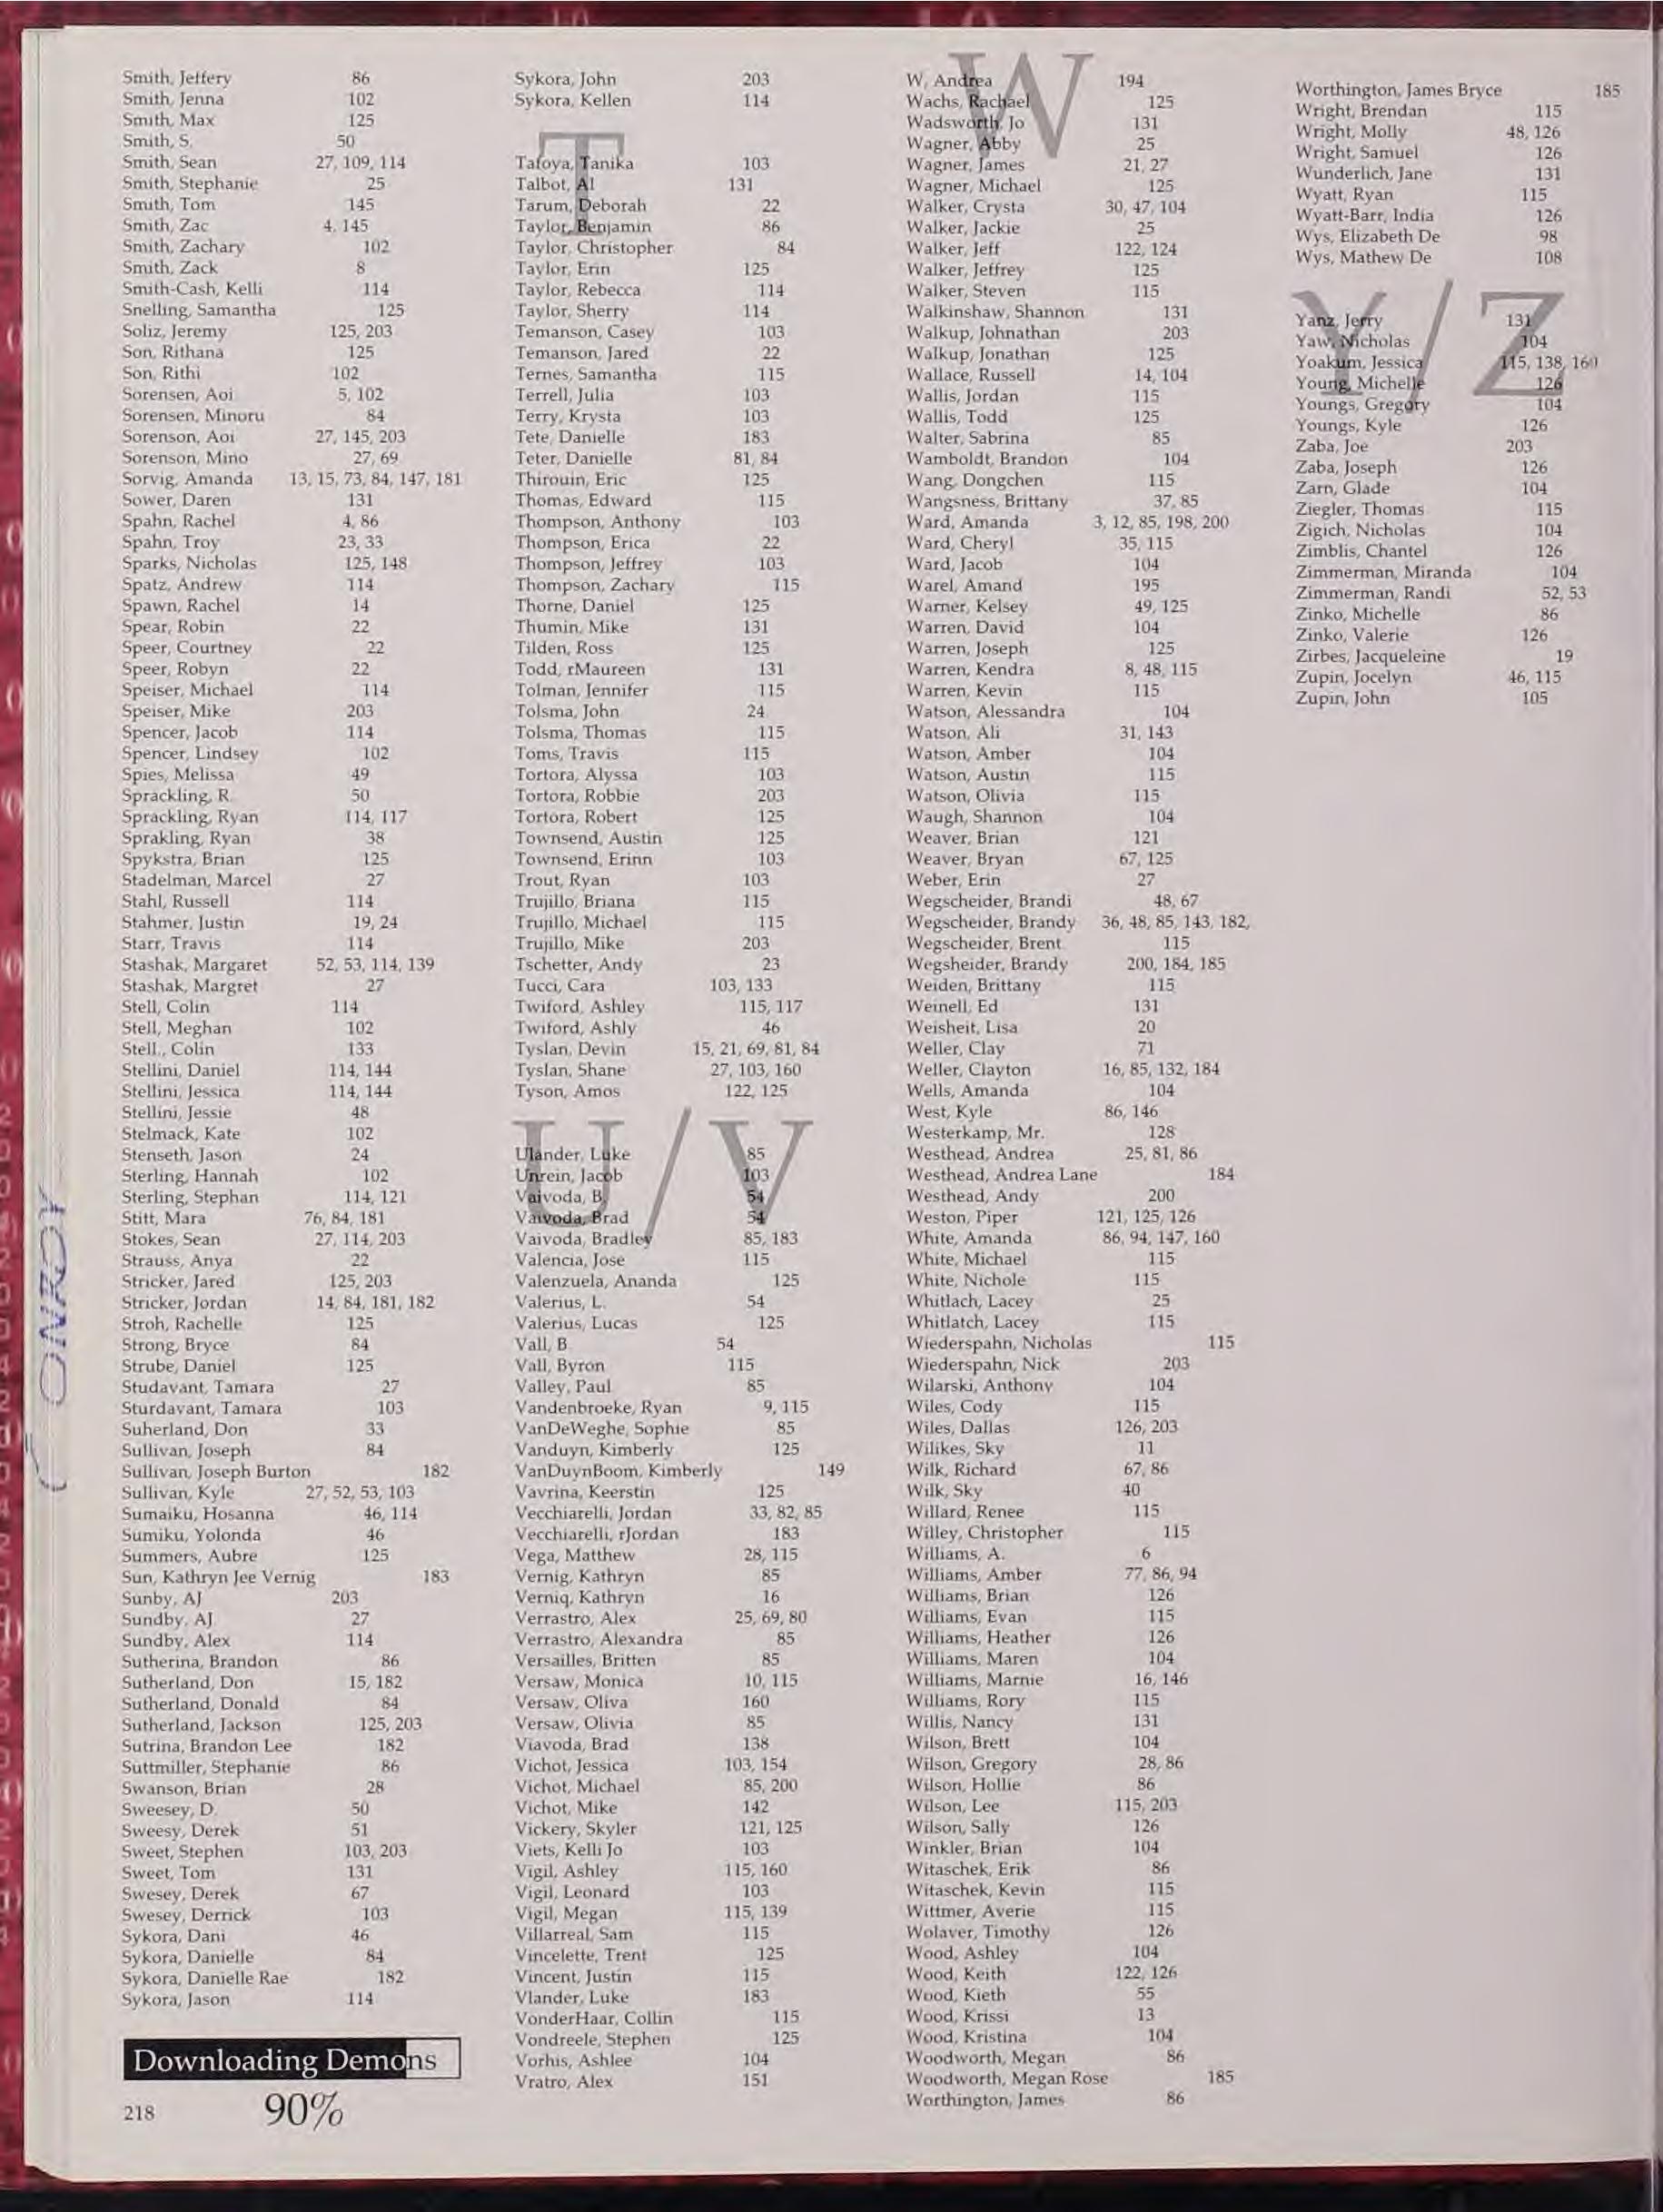 Smith, Jeffery 86
Smith, Jenna 102
Smith, Max 125
Smith, S. 50
Smith, Sean 27, 109, 114
Smith, Stephanie 25
Smith, Tom 145
Smith, Zac 4, 145
Smith, Zachary 102
Smith, Zack 8
Smith-Cash, Kelli 114
Snelling, Samantha 125
Soliz, Jeremy 125, 203
Son, Rithana 125
Son, Rithi 102
Sorensen, Aoi 5, 102
Sorensen, Minoru 84
Sorenson, Aoi 27, 145, 203
Sorenson, Mino 27, 69
Sorvig, Amanda 13, 15, 73, 84, 147, 181
Sower, Daren 131
Spahn, Rachel 4, 86
Spahn, Troy 23, 33
Sparks, Nicholas 125, 148
Spatz, Andrew 114
Spawn, Rachel 14
Spear, Robin 22
Speer, Courtney 22
Speer, Robyn 22
Speiser, Michael 114
Speiser, Mike 203
Spencer, Jacob 114
Spencer, Lindsey 102
Spies, Melissa 49
Sprackling, R. 50
Sprackling, Ryan 114, 117
Sprakling, Ryan 38
Spykstra, Brian 125
Stadelman, Marcel 27
Stahl, Russell 114
Stahmer, Justin 19, 24
Starr, Travis 114
Stashak, Margaret 52, 53, 114, 139
Stashak, Margret 27
Stell, Colin 114
Stell, Meghan 102
Stell., Colin 133
Stellini, Daniel 114, 144
Stellini, Jessica 114, 144
Stellini, Jessie 48
Stelmack, Kate 102
Stenseth, Jason 24
Sterling, Hannah 102
Sterling, Stephan 114, 121
Stitt, Mara 76, 84, 181
Stokes, Sean 27, 114, 203
Strauss, Anya 22
Stricker, Jared 125, 203
Stricker, Jordan 14, 84, 181, 182
Stroh, Rachelle 125
Strong, Bryce 84
Strube, Daniel 125
Studavant, Tamara 27
Sturdavant, Tamara 103
Suherland, Don 33
Sullivan, Joseph 84
Sullivan, Joseph Burton 182
Sullivan, Kyle 27, 52, 53, 103
Sumaiku, Hosanna 46, 114
Sumiku, Yolonda 46
Summers, Aubre 125
Sun, Kathryn Jee Vernig 183
Sunby, AJ 203
Sundby, AJ 27
Sundby, Alex 114
Sutherina, Brandon 86
Sutherland, Don 15, 182
Sutherland, Donald 84
Sutherland, Jackson 125, 203
Sutrina, Brandon Lee 182
Suttmiller, Stephanie 86
Swanson, Brian 28
Sweesey, D. 50
Sweesy, Derek 51
Sweet, Stephen 103, 203
Sweet, Tom 131
Swesey, Derek 67
Swesey, Derrick 103
Sykora, Dani 46
Sykora, Danielle 84
Sykora, Danielle Rae 182
Sykora, Jason 114
Downloading Demons
218 90%
Sykora, John 203
Sykora, Kellen 114
T
Tafoya, Tanika 103
Talbot, Al 131
Tarum, Deborah 22
Taylor, Benjamin 86
Taylor, Christopher 84
Taylor, Erin 125
Taylor, Rebecca 114
Taylor, Sherry 114
Temanson, Casey 103
Temanson, Jared 22
Ternes, Samantha 115
Terrell, Julia 103
Terry, Krysta 103
Tete, Danielle 183
Teter, Danielle 81, 84
Thirouin, Eric 125
Thomas, Edward 115
Thompson, Anthony 103
Thompson, Erica 22
Thompson, Jeffrey 103
Thompson, Zachary 115
Thorne, Daniel 125
Thumin, Mike 131
Tilden, Ross 125
Todd, rMaureen 131
Tolman, Jennifer 115
Tolsma, John 24
Tolsma, Thomas 115
Toms, Travis 115
Tortora, Alyssa 103
Tortora, Robbie 203
Tortora, Robert 125
Townsend, Austin 125
Townsend, Erinn 103
Trout, Ryan 103
Trujillo, Briana 115
Trujillo, Michael 115
Trujillo, Mike 203
Tschetter, Andy 23
Tucci, Cara 103, 133
Twiford, Ashley 115, 117
Twiford, Ashly 46
Tyslan, Devin 15, 21, 69, 81, 84
Tyslan, Shane 27, 103, 160
Tyson, Amos 122, 125
U/V
Ulander, Luke 85
Unrein, Jacob 103
Vaivoda, B. 54
Vaivoda, Brad 54
Vaivoda, Bradley 85, 183
Valencia, Jose 115
Valenzuela, Ananda 125
Valerius, L. 54
Valerius, Lucas 125
Vall, B. 54
Vall, Byron 115
Valley, Paul 85
Vandenbroeke, Ryan 9, 115
VanDeWeghe, Sophie 85
Vanduyn, Kimberly 125
VanDuynBoom, Kimberly 149
Vavrina, Keerstin 125
Vecchiarelli, Jordan 33, 82, 85
Vecchiarelli, rJordan 183
Vega, Matthew 28, 115
Vernig, Kathryn 85
Verniq, Kathryn 16
Verrastro, Alex 25, 69, 80
Verrastro, Alexandra 85
Versailles, Britten 85
Versaw, Monica 10, 115
Versaw, Oliva 160
Versaw, Olivia 85
Viavoda, Brad 138
Vichot, Jessica 103, 154
Vichot, Michael 85, 200
Vichot, Mike 142
Vickery, Skyler 121, 125
Viets, Kelli Jo 103
Vigil, Ashley 115, 160
Vigil, Leonard 103
Vigil, Megan 115, 139
Villarreal, Sam 115
Vincelette, Trent 125
Vincent, Justin 115
Vlander, Luke 183
VonderHaar, Collin 115
Vondreele, Stephen 125
Vorhis, Ashlee 104
Vratro, Alex 151
W
W, Andrea 194
Wachs, Rachael 125
Wadsworth, Jo 131
Wagner, Abby 25
Wagner, James 21, 27
Wagner, Michael 125
Walker, Crysta 30, 47, 104
Walker, Jackie 25
Walker, Jeff 122, 124
Walker, Jeffrey 125
Walker, Steven 115
Walkinshaw, Shannon 131
Walkup, Johnathan 203
Walkup, Jonathan 125
Wallace, Russell 14, 104
Wallis, Jordan 115
Wallis, Todd 125
Walter, Sabrina 85
Wamboldt, Brandon 104
Wang, Dongchen 115
Wangsness, Brittany 37, 85
Ward, Amanda 3, 12, 85, 198, 200
Ward, Cheryl 35, 115
Ward, Jacob 104
Warel, Amand 195
Warner, Kelsey 49, 125
Warren, David 104
Warren, Joseph 125
Warren, Kendra 8, 48, 115
Warren, Kevin 115
Watson, Alessandra 104
Watson, Ali 31, 143
Watson, Amber 104
Watson, Austin 115
Watson, Olivia 115
Waugh, Shannon 104
Weaver, Brian 121
Weaver, Bryan 67, 125
Weber, Erin 27
Wegscheider, Brandi 48, 67
Wegscheider, Brandy 36, 48, 85, 143, 182,
Wegscheider, Brent 115
Wegsheider, Brandy 200, 184, 185
Weiden, Brittany 115
Weinell, Ed 131
Weisheit, Lisa 20
Weller, Clay 71
Weller, Clayton 16, 85, 132, 184
Wells, Amanda 104
West, Kyle 86, 146
Westerkamp, Mr. 128
Westhead, Andrea 25, 81, 86
Westhead, Andrea Lane 184
Westhead, Andy 200
Weston, Piper 121, 125, 126
White, Amanda 86, 94, 147, 160
White, Michael 115
White, Nichole 115
Whitlach, Lacey 25
Whitlatch, Lacey 115
Wiederspahn, Nicholas 115
Wiederspahn, Nick 203
Wilarski, Anthony 104
Wiles, Cody 115
Wiles, Dallas 126, 203
Wilikes, Sky 11
Wilk, Richard 67, 86
Wilk, Sky 40
Willard, Renee 115
Willey, Christopher 115
Williams, A. 6
Williams, Amber 77, 86, 94
Williams, Brian 126
Williams, Evan 115
Williams, Heather 126
Williams, Maren 104
Williams, Marnie 16, 146
Williams, Rory 115
Willis, Nancy 131
Wilson, Brett 104
Wilson, Gregory 28, 86
Wilson, Hollie 86
Wilson, Lee 115, 203
Wilson, Sally 126
Winkler, Brian 104
Witaschek, Erik 86
Witaschek, Kevin 115
Wittmer, Averie 115
Wolaver, Timothy 126
Wood, Ashley 104
Wood, Keith 122, 126
Wood, Kieth 55
Wood, Krissi 13
Wood, Kristina 104
Woodworth, Megan 86
Woodworth, Megan Rose 185
Worthington, James 86
Worthington, James Bryce 185
Wright, Brendan 115
Wright, Molly 48, 126
Wright, Samuel 126
Wunderlich, Jane 131
Wyatt, Ryan 115
Wyatt-Barr, India 126
Wys, Elizabeth De 98
Wys, Mathew De 108
Y/Z
Yanz, Jerry 131
Yaw, Nicholas 104
Yoakum, Jessica 115, 138, 160
Young, Michelle 126
Youngs, Gregory 104
Youngs, Kyle 126
Zaba, Joe 203
Zaba, Joseph 126
Zarn, Glade 104
Ziegler, Thomas 115
Zigich, Nicholas 104
Zimblis, Chantel 126
Zimmerman, Miranda 104
Zimmerman, Randi 52, 53
Zinko, Michelle 86
Zinko, Valerie 126
Zirbes, Jacqueleine 19
Zupin, Jocelyn 46, 115
Zupin, John 105